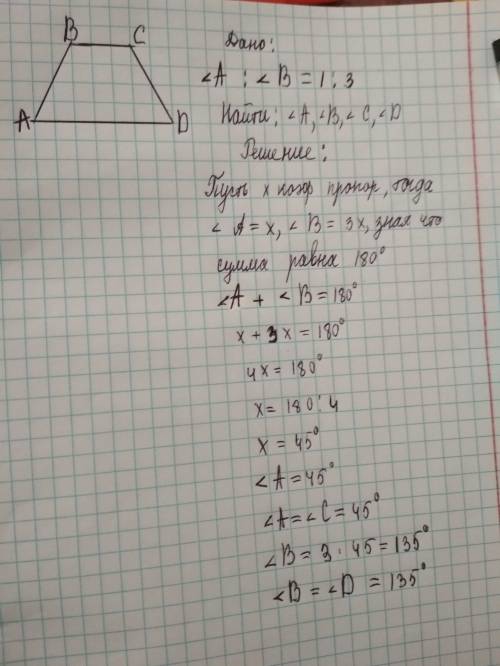 B C
A D
Дано:
∠A : ∠B = 1 : 3
Найти: ∠A, ∠B, ∠C, ∠D
Решение:
Пусть x коэф пропор, тогда
∠A = x, ∠B = 3x, зная что
сумма равна 180°
∠A + ∠B = 180°
x + 3x = 180°
4x = 180°
x = 180 : 4
x = 45°
∠A = 45°
∠A = ∠C = 45°
∠B = 3 · 45 = 135°
∠B = ∠D = 135°